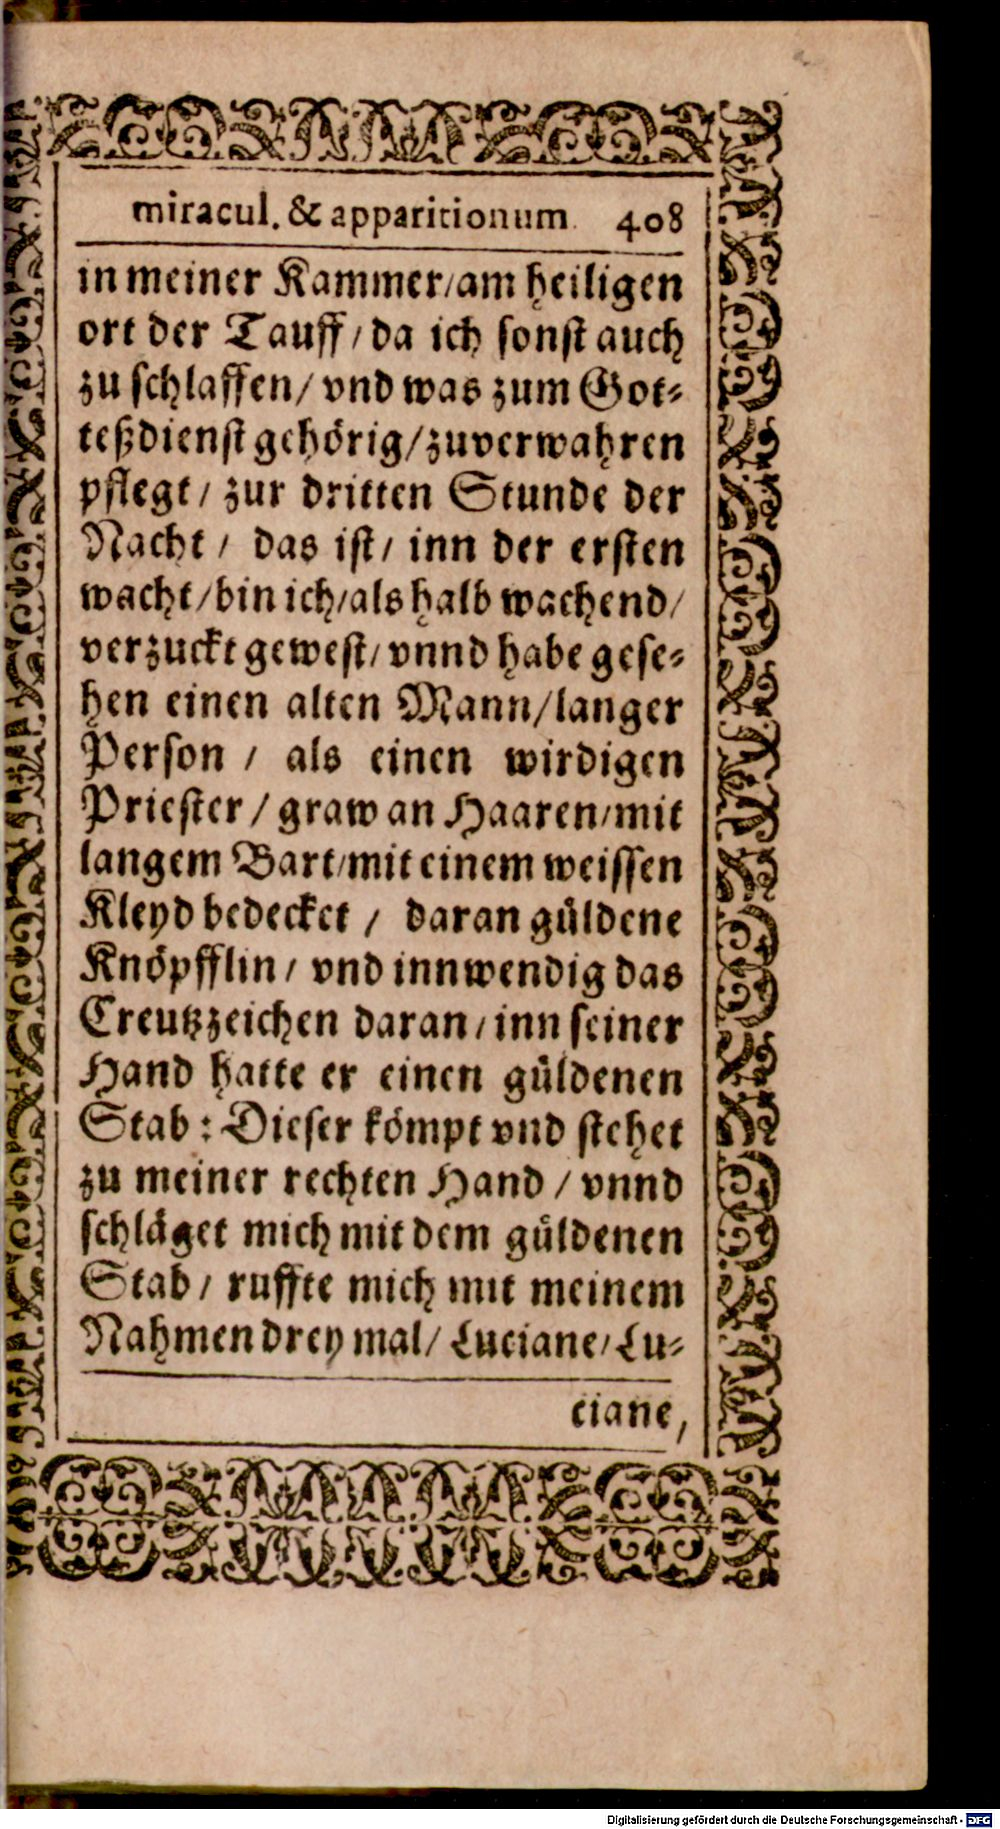 miracul. & apparitionum. 408
in meiner Kammer/am heiligen
ort der Tauff/da ich sonst auch
zu schlaffen/ vnd was zum Got-
teßdienst gehörig/zuverwahren
pflegt/ zur dritten Stunde der
Nacht / das ist/ inn der ersten
wacht/bin ich/als halb wachend/
verzuckt gewest/vnnd habe gese-
hen einen alten Mann/langer
Person / als einen wirdigen
Priester / graw an Haaren/mit
langem Bart/mit einem weissen
Kleyd bedecket / daran güldene
Knöpfflin / vnd innwendig das
Creutzzeichen daran/inn seiner
Hand hatte er einen güldenen
Stab : Dieser kömpt vnd stehet
zu meiner rechten Hand / vnnd
schläget mich mit dem güldenen
Stab/ ruffte mich mit meinem
Nahmen drey mal/ Luciane/Lu-
ciane,
Digitalisierung gefördert durch die Deutsche Forschungsgemeinschaft - DFG